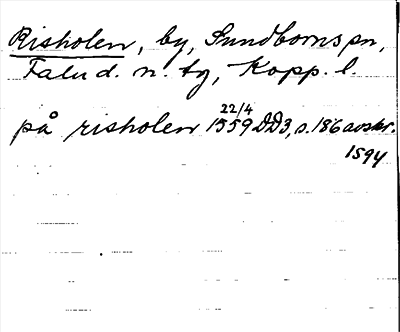 Risholen, by, Sundborns sn,
Falu d. n. tg, Kopp. l.
på risholen 22/4 1559 DD3, s. 186 avskr.
1594